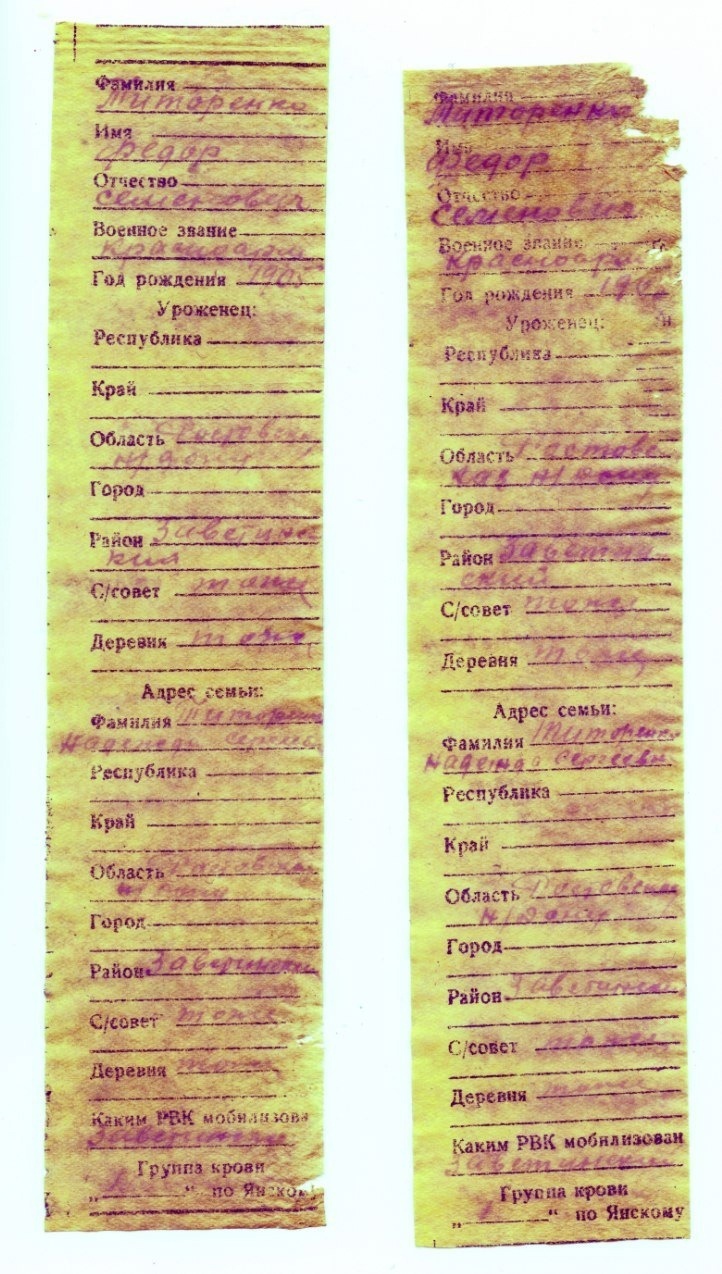 Фамилия
Титоренко
Имя
Федор
Отчество
Семенович
Военное звание
Красноарм
Год рождения 1905
Уроженец:
Республика
Край
Область Ростовская
н/Дону
Город
Район Заветин
ский
С/совет тоже
Деревня тоже
Адрес семьи:
Фамилия Титоренко
Надежда
Республика
Край
Область Ростовская
н/Дону
Город
Район Заветинский
С/совет тоже
Деревня тоже
Каким РВК мобилизова
Заветинский
Группа крови
„ “ по Янскому
Фамилия
Титоренко
Имя
Федор
Отчество
Семенович
Военное звание
Красноарм
Год рождения
Уроженец:
Республика
Край
Область Ростовс
кая н/Дону
Город
Район Заветин-
ский
С/совет тоже
Деревня тоже
Адрес семьи:
Фамилия Титоренко
Надежда Сергеевн
Республика
Край
Область Ростовская
н/Дону
Город
Район Заветинский
С/совет тоже
Деревня тоже
Каким РВК мобилизован
Заветинский
Группа крови
„ “ по Янскому